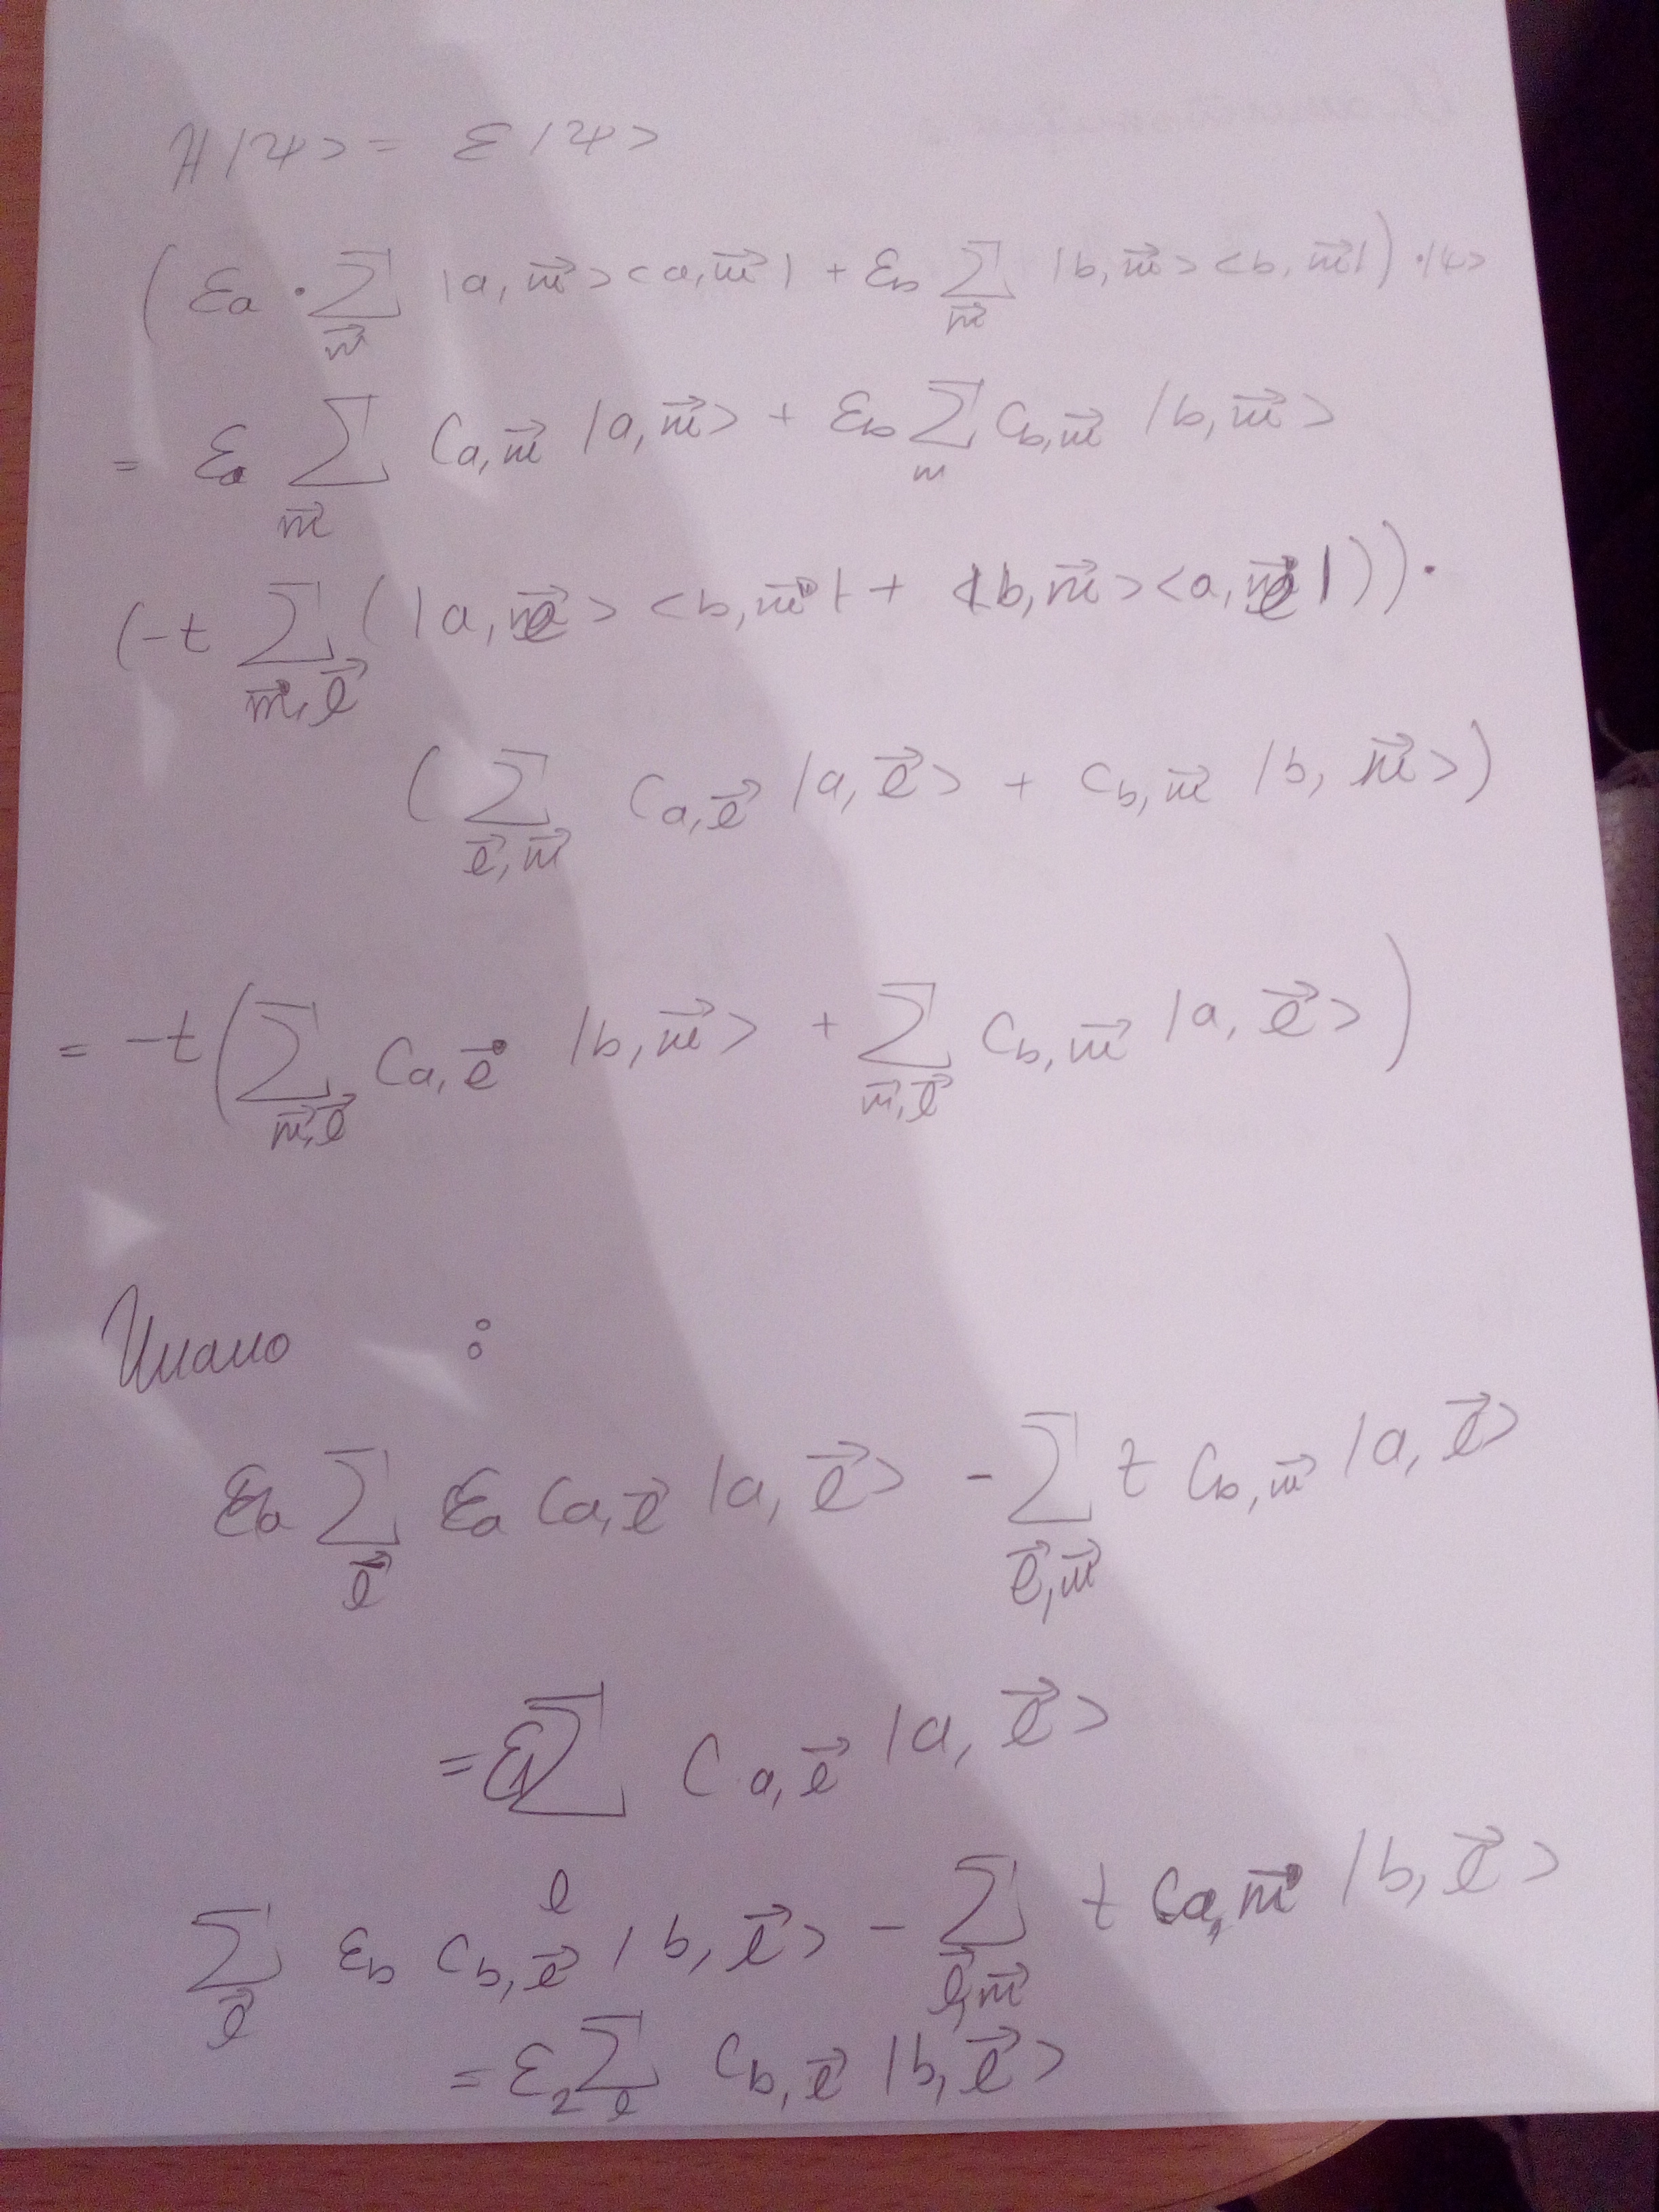 H|Ψ> = ε|Ψ>
(εa · ∑m⃗ |a, m⃗> <a, m⃗| + εb ∑m⃗ |b, m⃗> <b, m⃗|) · |Ψ>
= εa ∑m⃗ Ca,m⃗ |a, m⃗> + εb ∑m Cb,m⃗ |b, m⃗>
(-t ∑m⃗,l⃗ (|a, l⃗> <b, m⃗| + |b, m⃗> <a, l⃗|)) ·
(∑l⃗,m⃗ Ca,l⃗ |a, l⃗> + Cb,m⃗ |b, m⃗>)
= -t (∑m⃗,l⃗ Ca,l⃗ |b, m⃗> + ∑m⃗,l⃗ Cb,m⃗ |a, l⃗>)
Имамо :
∑l⃗ εa Ca,l⃗ |a, l⃗> - ∑l⃗,m⃗ t Cb,m⃗ |a, l⃗>
= ε1 ∑l Ca,l⃗ |a, l⃗>
∑l⃗ εb Cb,l⃗ |b, l⃗> - ∑l⃗,m⃗ t Ca,m⃗ |b, l⃗>
= ε2 ∑l Cb,l⃗ |b, l⃗>